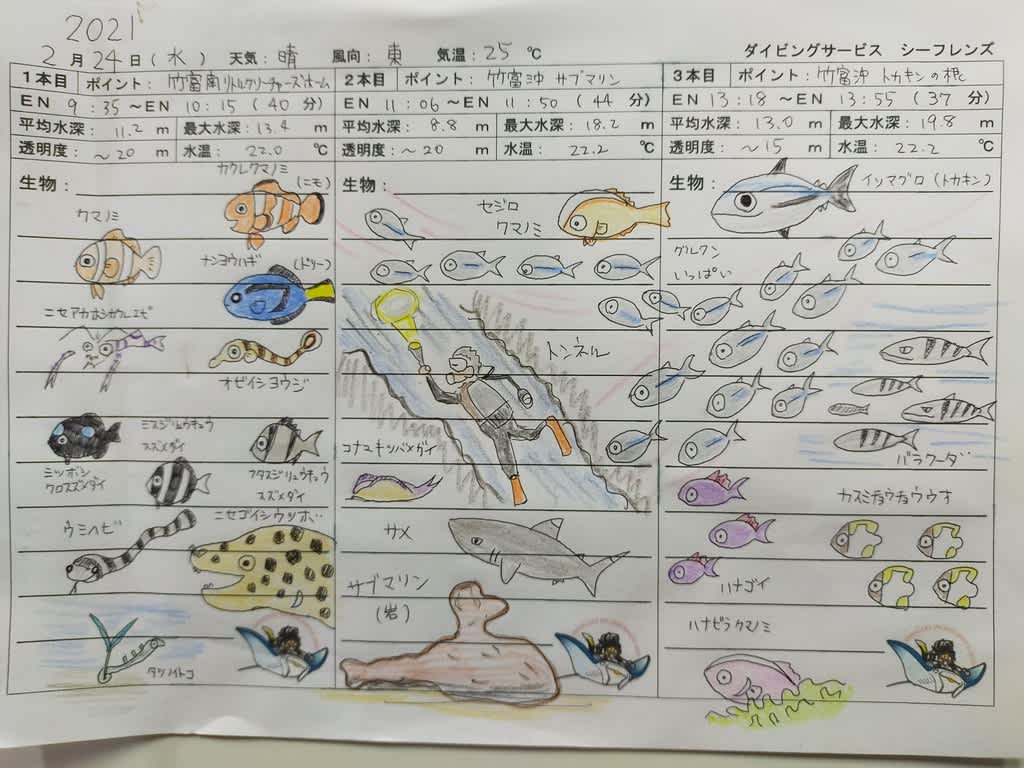 2021
2月24日(水) 天気:晴 風向:東 気温:25℃ ダイビングサービス シーフレンズ
1本目 ポイント:竹富南リトルクリーチャーズホーム
EN 9:35～EN 10:15(40分)
平均水深:11.2m 最大水深:13.4m
透明度:～20m 水温:22.0℃
生物:
カクレクマノミ
(ニモ)
クマノミ
ナンヨウハギ (ドリー)
ニセアカホシカクレエビ
オビイシヨウジ
ミスジリュウキュウ
スズメダイ
ミツボシ
クロスズメダイ
フタスジリュウキュウ
スズメダイ
ウミヘビ
ニセゴイシウツボ
タツノイトコ
2本目 ポイント:竹富沖 サブマリン
EN 11:06～EN 11:50(44分)
平均水深:8.8m 最大水深:18.2m
透明度:～20m 水温:22.2℃
生物:
セジロ
クマノミ
トンネル
コナユキツバメガイ
サメ
サブマリン
(岩)
3本目 ポイント:竹富沖 トカキンの根
EN 13:18～EN 13:55(37分)
平均水深:13.0m 最大水深:19.8m
透明度:～15m 水温:22.2℃
生物:
イソマグロ(トカキン)
グルクン
いっぱい
バラクーダ
カスミチョウチョウウオ
ハナゴイ
ハナビラクマノミ